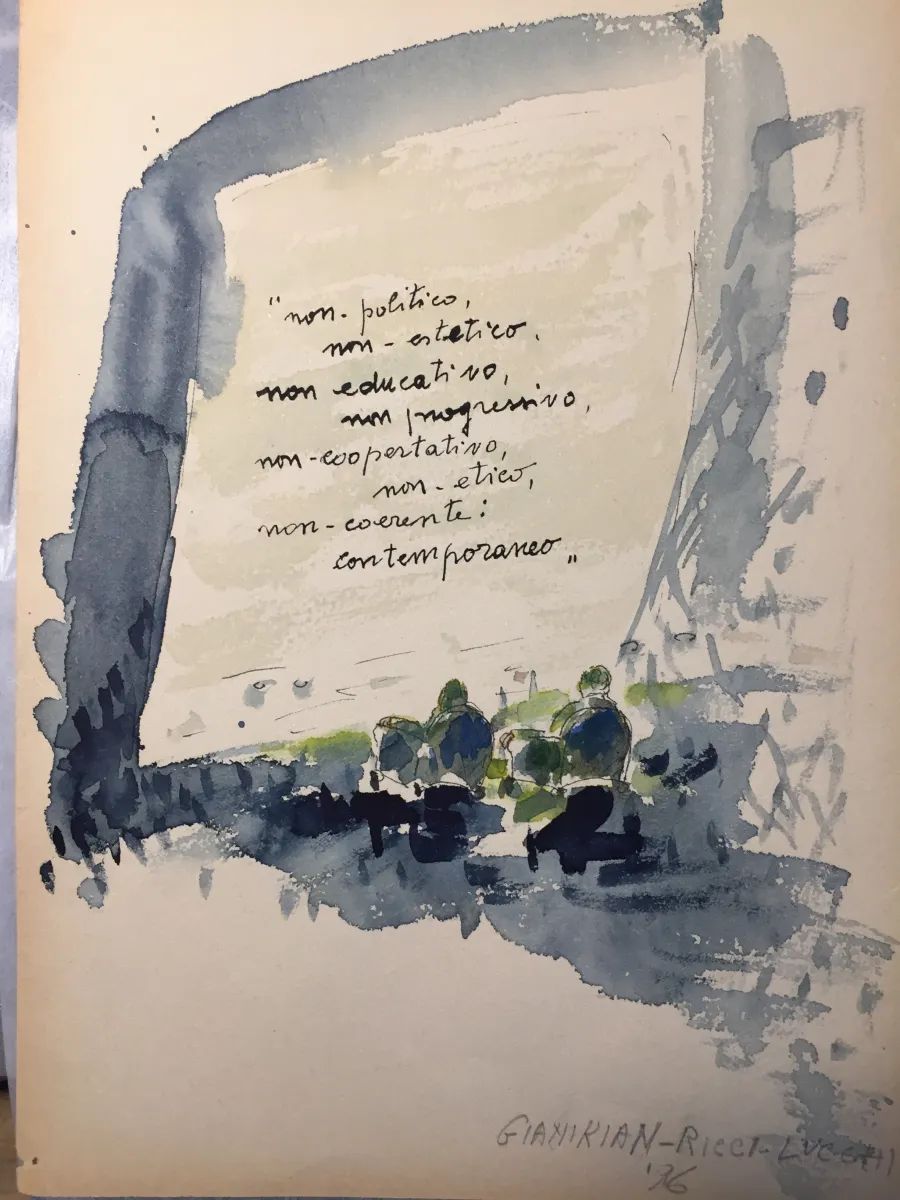 "non-politico,
non-estetico.
non educativo,
non progressivo,
non-coopertativo,
non-etico,
non-coerente:
contemporaneo„
GIANIKIAN-RICCI-LUCCHI
'96